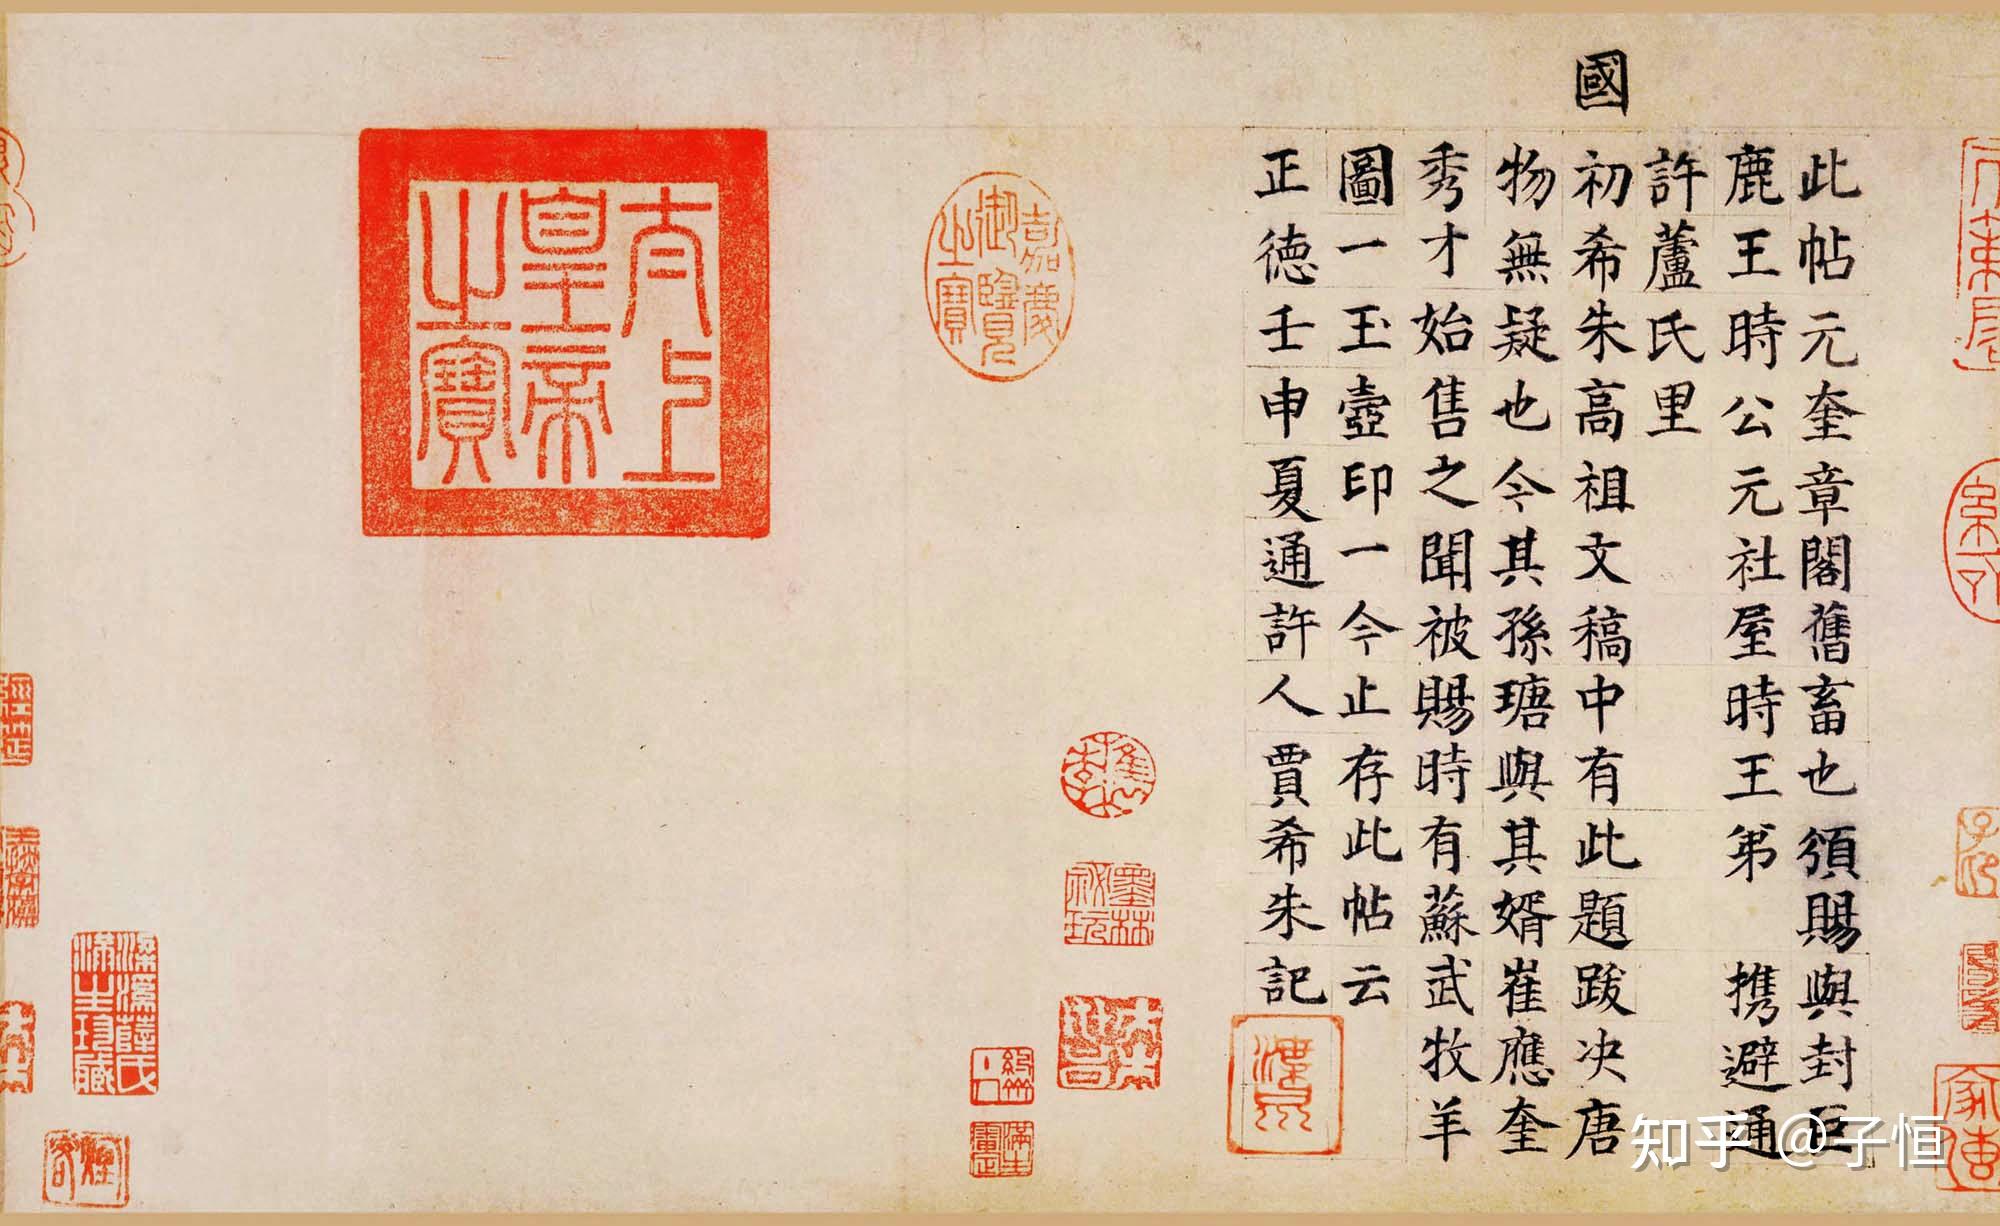 此帖元奎章閣舊畜也頒賜與封臣
鹿王時公元社屋時王弟携避通
許蘆氏里
國
初希朱高祖文稿中有此題跋决唐
物無疑也今其孫瑭與其婿崔應奎
秀才始售之聞被賜時有蘇武牧羊
圖一玉壺印一今止存此帖云
正德壬申夏通許人賈希朱記
嘉慶御覽之寶
太上皇帝之寶
墨林祕玩
知乎 @子恒